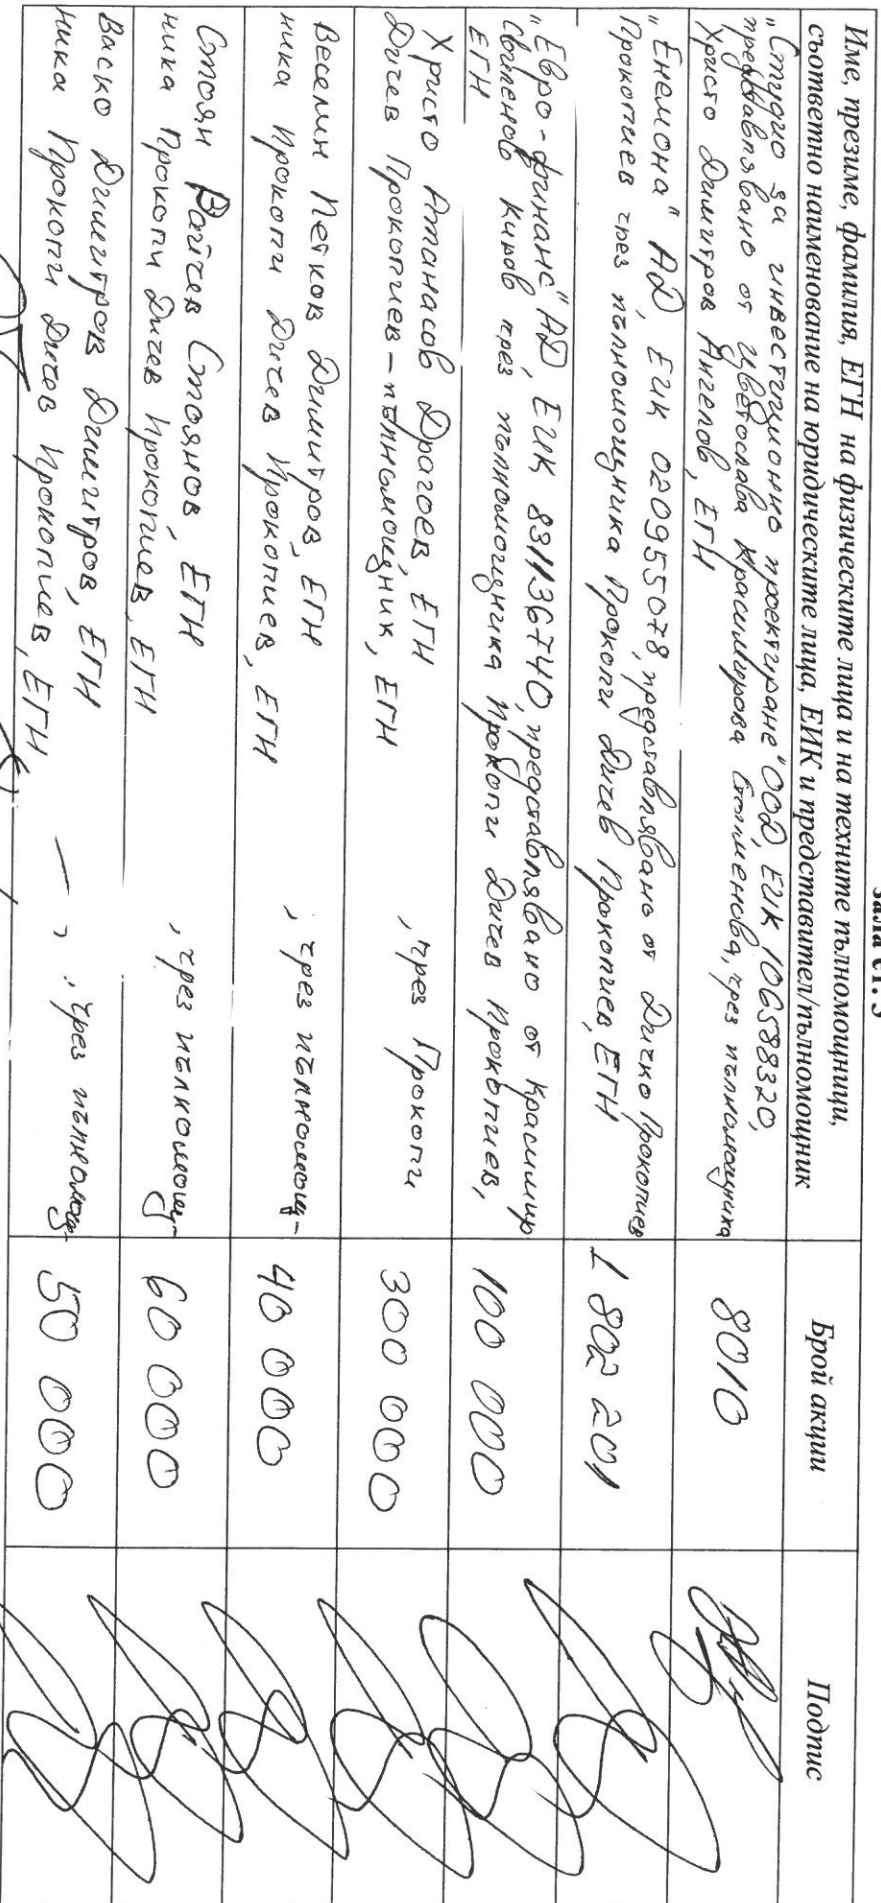 зала ет. 3
Име, презиме, фамилия, ЕГН на физическите лица и на техните пълномощници,
съответно наименование на юридическите лица, ЕИК и представител/пълномощник
Брой акции
Подпис
„Студио за инвестиционно проектиране" ООД, ЕИК 106588320,
представлявано от Цветослава Красимирова Стоименова, чрез пълномощника
Христо Димитров Ангелов, ЕГН
8010
„Енемона" АД, ЕИК 020955078, представлявано от Дичко Прокопиев
Прокопиев чрез пълномощника Прокопи Дичев Прокопиев, ЕГН
1 802 201
„Евро-финанс" АД, ЕИК 831136740, представлявано от Красимир
Киров чрез пълномощника Прокопи Дичев Прокопиев,
ЕГН
100 000
Христо Атанасов Драгоев, ЕГН , чрез Прокопи
Дичев Прокопиев - пълномощник, ЕГН
300 000
Веселин Петков Димитров, ЕГН , чрез пълномощ-
ника Прокопи Дичев Прокопиев, ЕГН
40 000
Стоян Стоянов, ЕГН , чрез пълномощ-
ника Прокопи Дичев Прокопиев, ЕГН
60 000
Васко Димитров Димитров, ЕГН , чрез пълномощ-
ника Прокопи Дичев Прокопиев, ЕГН
50 000